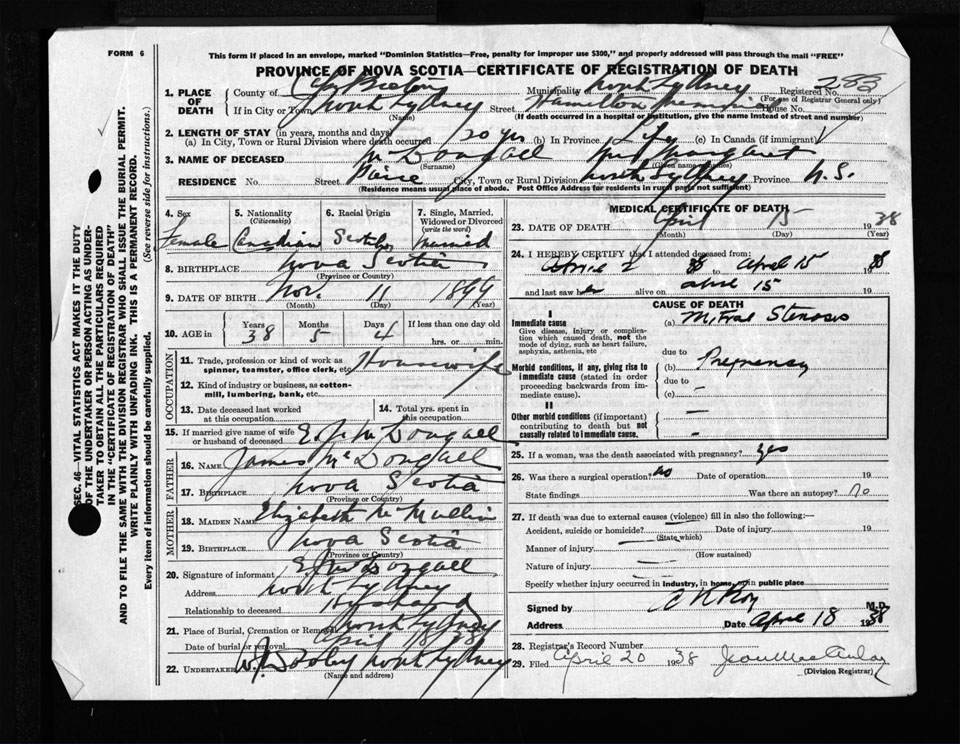 FORM 6
This form if placed in an envelope, marked "Dominion Statistics—Free, penalty for improper use $300," and properly addressed will pass through the mail "FREE"
PROVINCE OF NOVA SCOTIA—CERTIFICATE OF REGISTRATION OF DEATH
SEC. 46—VITAL STATISTICS ACT MAKES IT THE DUTY
OF THE UNDERTAKER OR PERSON ACTING AS UNDER-
TAKER TO OBTAIN ALL THE PARTICULARS REQUIRED
IN THE "CERTIFICATE OF REGISTRATION OF DEATH"
AND TO FILE THE SAME WITH THE DIVISION REGISTRAR WHO SHALL ISSUE THE BURIAL PERMIT.
WRITE PLAINLY WITH UNFADING INK. THIS IS A PERMANENT RECORD.
Every item of information should be carefully supplied. (See reverse side for instructions.)
1. PLACE OF DEATH County of Cape Breton Municipality North Sydney Registered No. 283
(For use of Registrar General only)
If in City or Town North Sydney Street Hamilton House No.
(Name) (If death occurred in a hospital or institution, give the name instead of street and number)
2. LENGTH OF STAY (in years, months and days)
(a) In City, Town or Rural Division where death occurred 20 yrs (b) In Province Life (c) In Canada (if immigrant)
3. NAME OF DECEASED McDougall Mrs Margaret
(Surname) (Given name or names)
RESIDENCE No. Street Pierce City, Town or Rural Division North Sydney Province N.S.
(Residence means usual place of abode. Post Office Address for residents in rural parts not sufficient)
4. Sex Female
5. Nationality (Citizenship) Canadian
6. Racial Origin Scotch
7. Single, Married, Widowed or Divorced (write the word) Married
8. BIRTHPLACE Nova Scotia
(Province or Country)
9. DATE OF BIRTH Nov. 11 1899
(Month) (Day) (Year)
10. AGE in Years 38 Months 5 Days 4 If less than one day old hrs. or min.
OCCUPATION
11. Trade, profession or kind of work as spinner, teamster, office clerk, etc. Housewife
12. Kind of industry or business, as cotton-mill, lumbering, bank, etc.
13. Date deceased last worked at this occupation
14. Total yrs. spent in this occupation
15. If married give name of wife or husband of deceased E. J. McDougall
FATHER
16. NAME James McDougall
17. BIRTHPLACE Nova Scotia
(Province or Country)
MOTHER
18. MAIDEN NAME Elizabeth McMullin
19. BIRTHPLACE Nova Scotia
(Province or Country)
20. Signature of informant E. J. McDougall
Address North Sydney
Relationship to deceased Husband
21. Place of Burial, Cremation or Removal North Sydney
Date of burial or removal April 38
22. UNDERTAKER W. J. Dooley North Sydney
(Name and address)
MEDICAL CERTIFICATE OF DEATH
23. DATE OF DEATH April 15 1938
(Month) (Day) (Year)
24. I HEREBY CERTIFY that I attended deceased from:
April 2 38 to April 15 1938
and last saw her alive on April 15 19
CAUSE OF DEATH
I
Immediate cause
Give disease, injury or complication which caused death, not the mode of dying, such as heart failure, asphyxia, asthenia, etc
(a) Mitral Stenosis
due to
Morbid conditions, if any, giving rise to immediate cause (stated in order proceeding backwards from immediate cause).
(b) Pregnancy
due to —
(c)
II
Other morbid conditions (if important) contributing to death but not causally related to immediate cause.
—
—
25. If a woman, was the death associated with pregnancy? Yes
26. Was there a surgical operation? no Date of operation 19
State findings Was there an autopsy? no
27. If death was due to external causes (violence) fill in also the following:—
Accident, suicide or homicide? — Date of injury 19
(State which)
Manner of injury —
(How sustained)
Nature of injury —
Specify whether injury occurred in industry, in home, or in public place
Signed by M.D.
Address Date April 18 1938
28. Registrar's Record Number
29. Filed April 20 1938 Jean MacAulay
(Division Registrar)